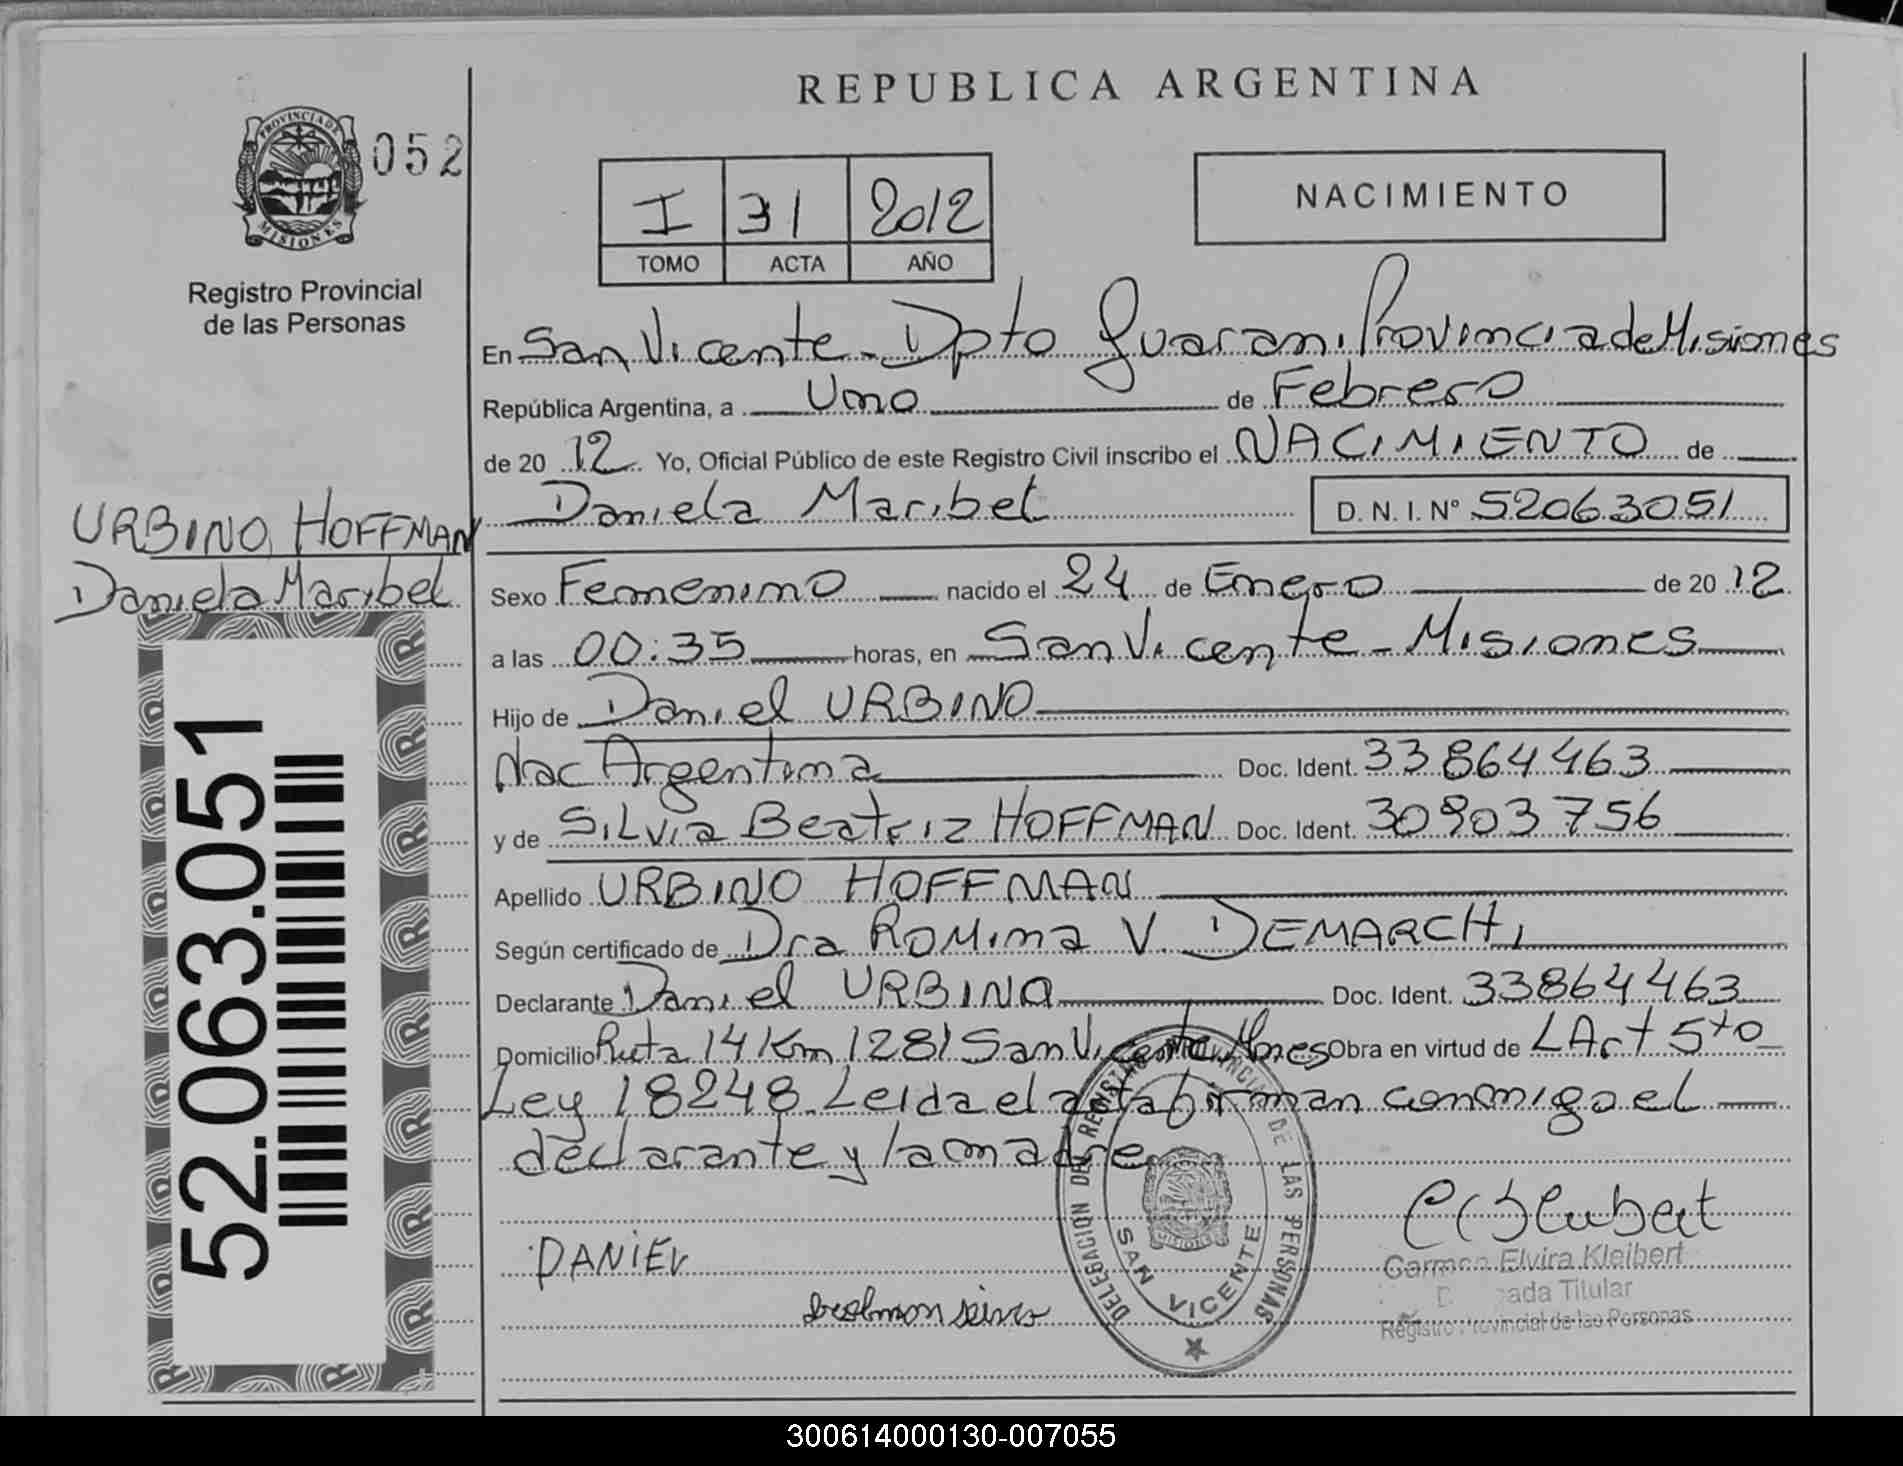 REPUBLICA ARGENTINA
PROVINCIA DE
MISIONES
052
Registro Provincial
de las Personas
I 31 2012
TOMO ACTA AÑO
NACIMIENTO
En San Vicente - Dpto Guarani Provincia de Misiones
República Argentina, a Uno de Febrero
de 20 12 Yo, Oficial Público de este Registro Civil inscribo el NACIMIENTO de
Daniela Maribel D. N. I. Nº 52063051
URBINO HOFFMAN
Daniela Maribel
Sexo Femenino nacido el 24 de Enero de 20 12
a las 00:35 horas, en San Vicente - Misiones
Hijo de Daniel URBINO
Nac Argentina Doc. Ident. 33864463
y de Silvia Beatriz HOFFMAN Doc. Ident. 30903756
Apellido URBINO HOFFMAN
Según certificado de Dra Romina V. DEMARCHI
Declarante Daniel URBINO Doc. Ident. 33864463
Domicilio Ruta 14 Km 1281 San Vicente Mnes Obra en virtud de L Art 5to
Ley 18248. Leida el acta firman conmigo el
declarante y la madre
52.063.051
DANIEL
DELEGACION DEL REGISTRO PROVINCIAL DE LAS PERSONAS
SAN VICENTE
MISIONES
Carmen Elvira Kleibert
Titular
Registro Provincial de las Personas
300614000130-007055